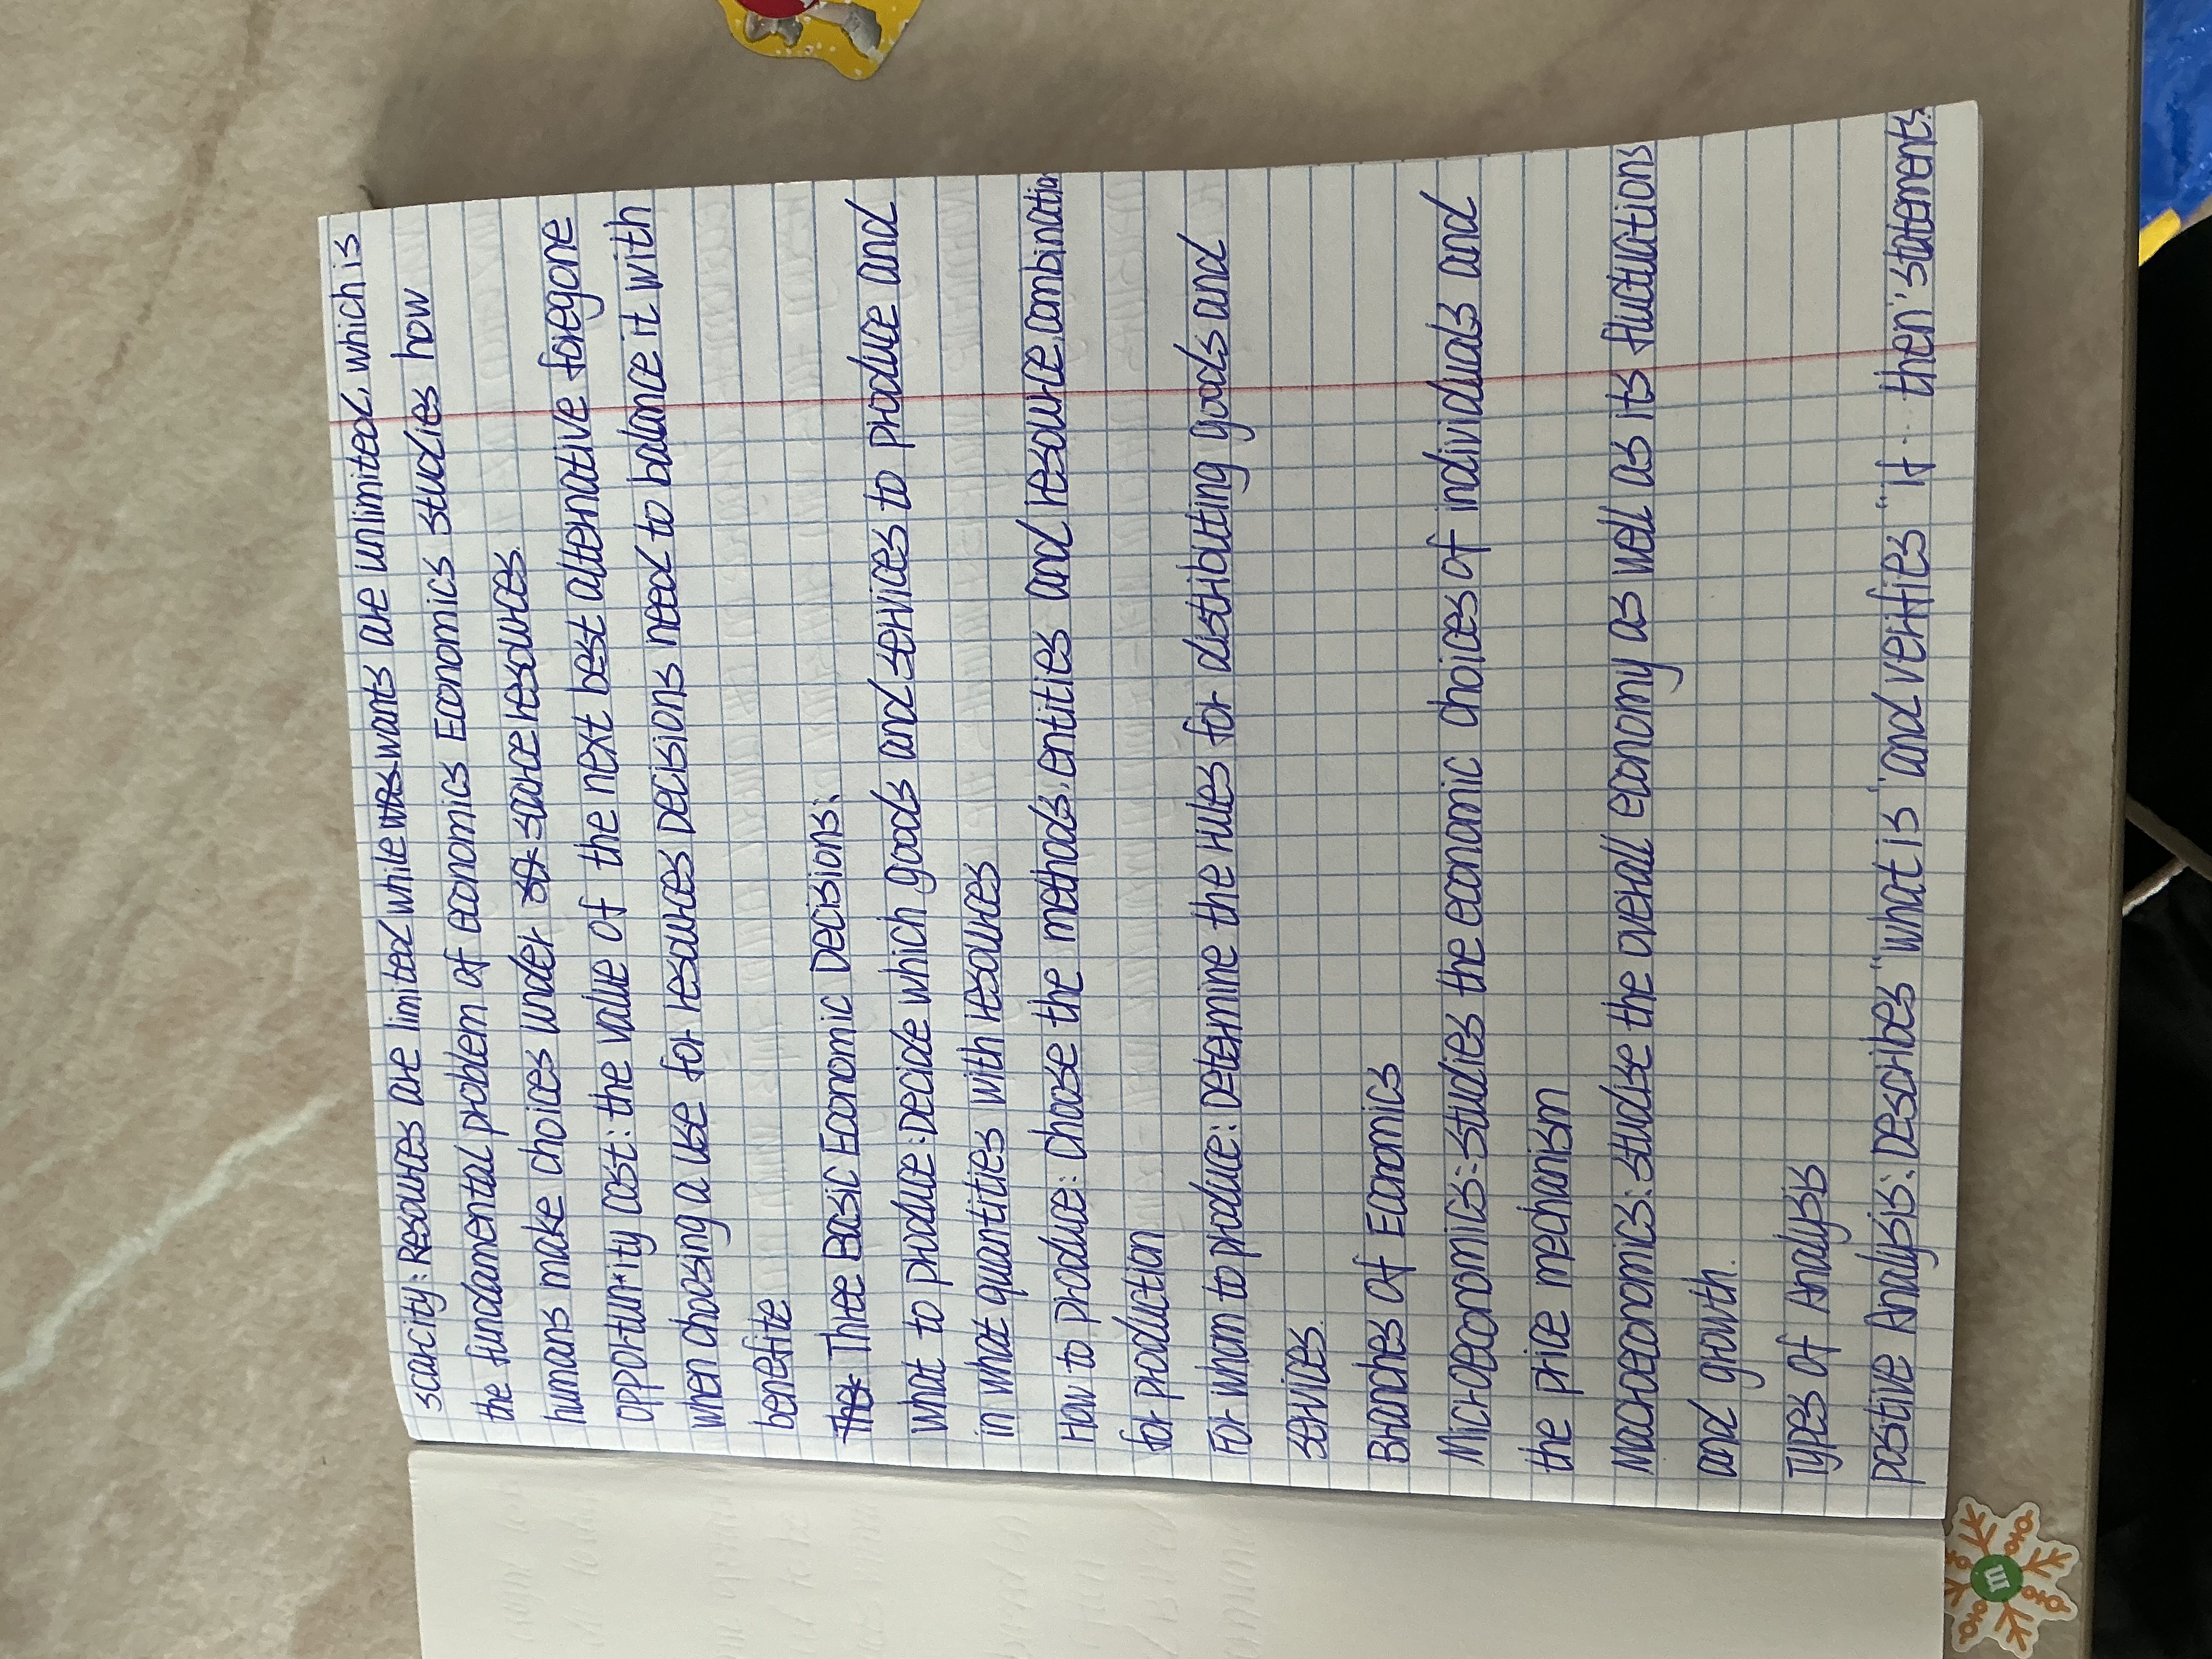 scarcity: Resources are limited while was wants are unlimited, which is
the fundamental problem of economics Economics studies how
humans make choices under scarce resources.
opportunity cost: the value of the next best alternative foregone
when choosing a use for resources Decisions need to balance it with
benefite
The Three Basic Economic Decisions:
what to produce: Decide which goods and services to produce and
in what quantities with resources
How to produce: choose the methods, entities and resource combination
for production
For whom to produce: Determine the rules for distributing goods and
services.
Branches of Economics
Microeconomics: studies the economic choices of individuals and
the price mechanism
Macroeconomics: studise the overall economy as well as its fluctuations
and growth.
Types of Analysis
positive Analysis: Describes "what is" and verifies "if... then" statements.
m